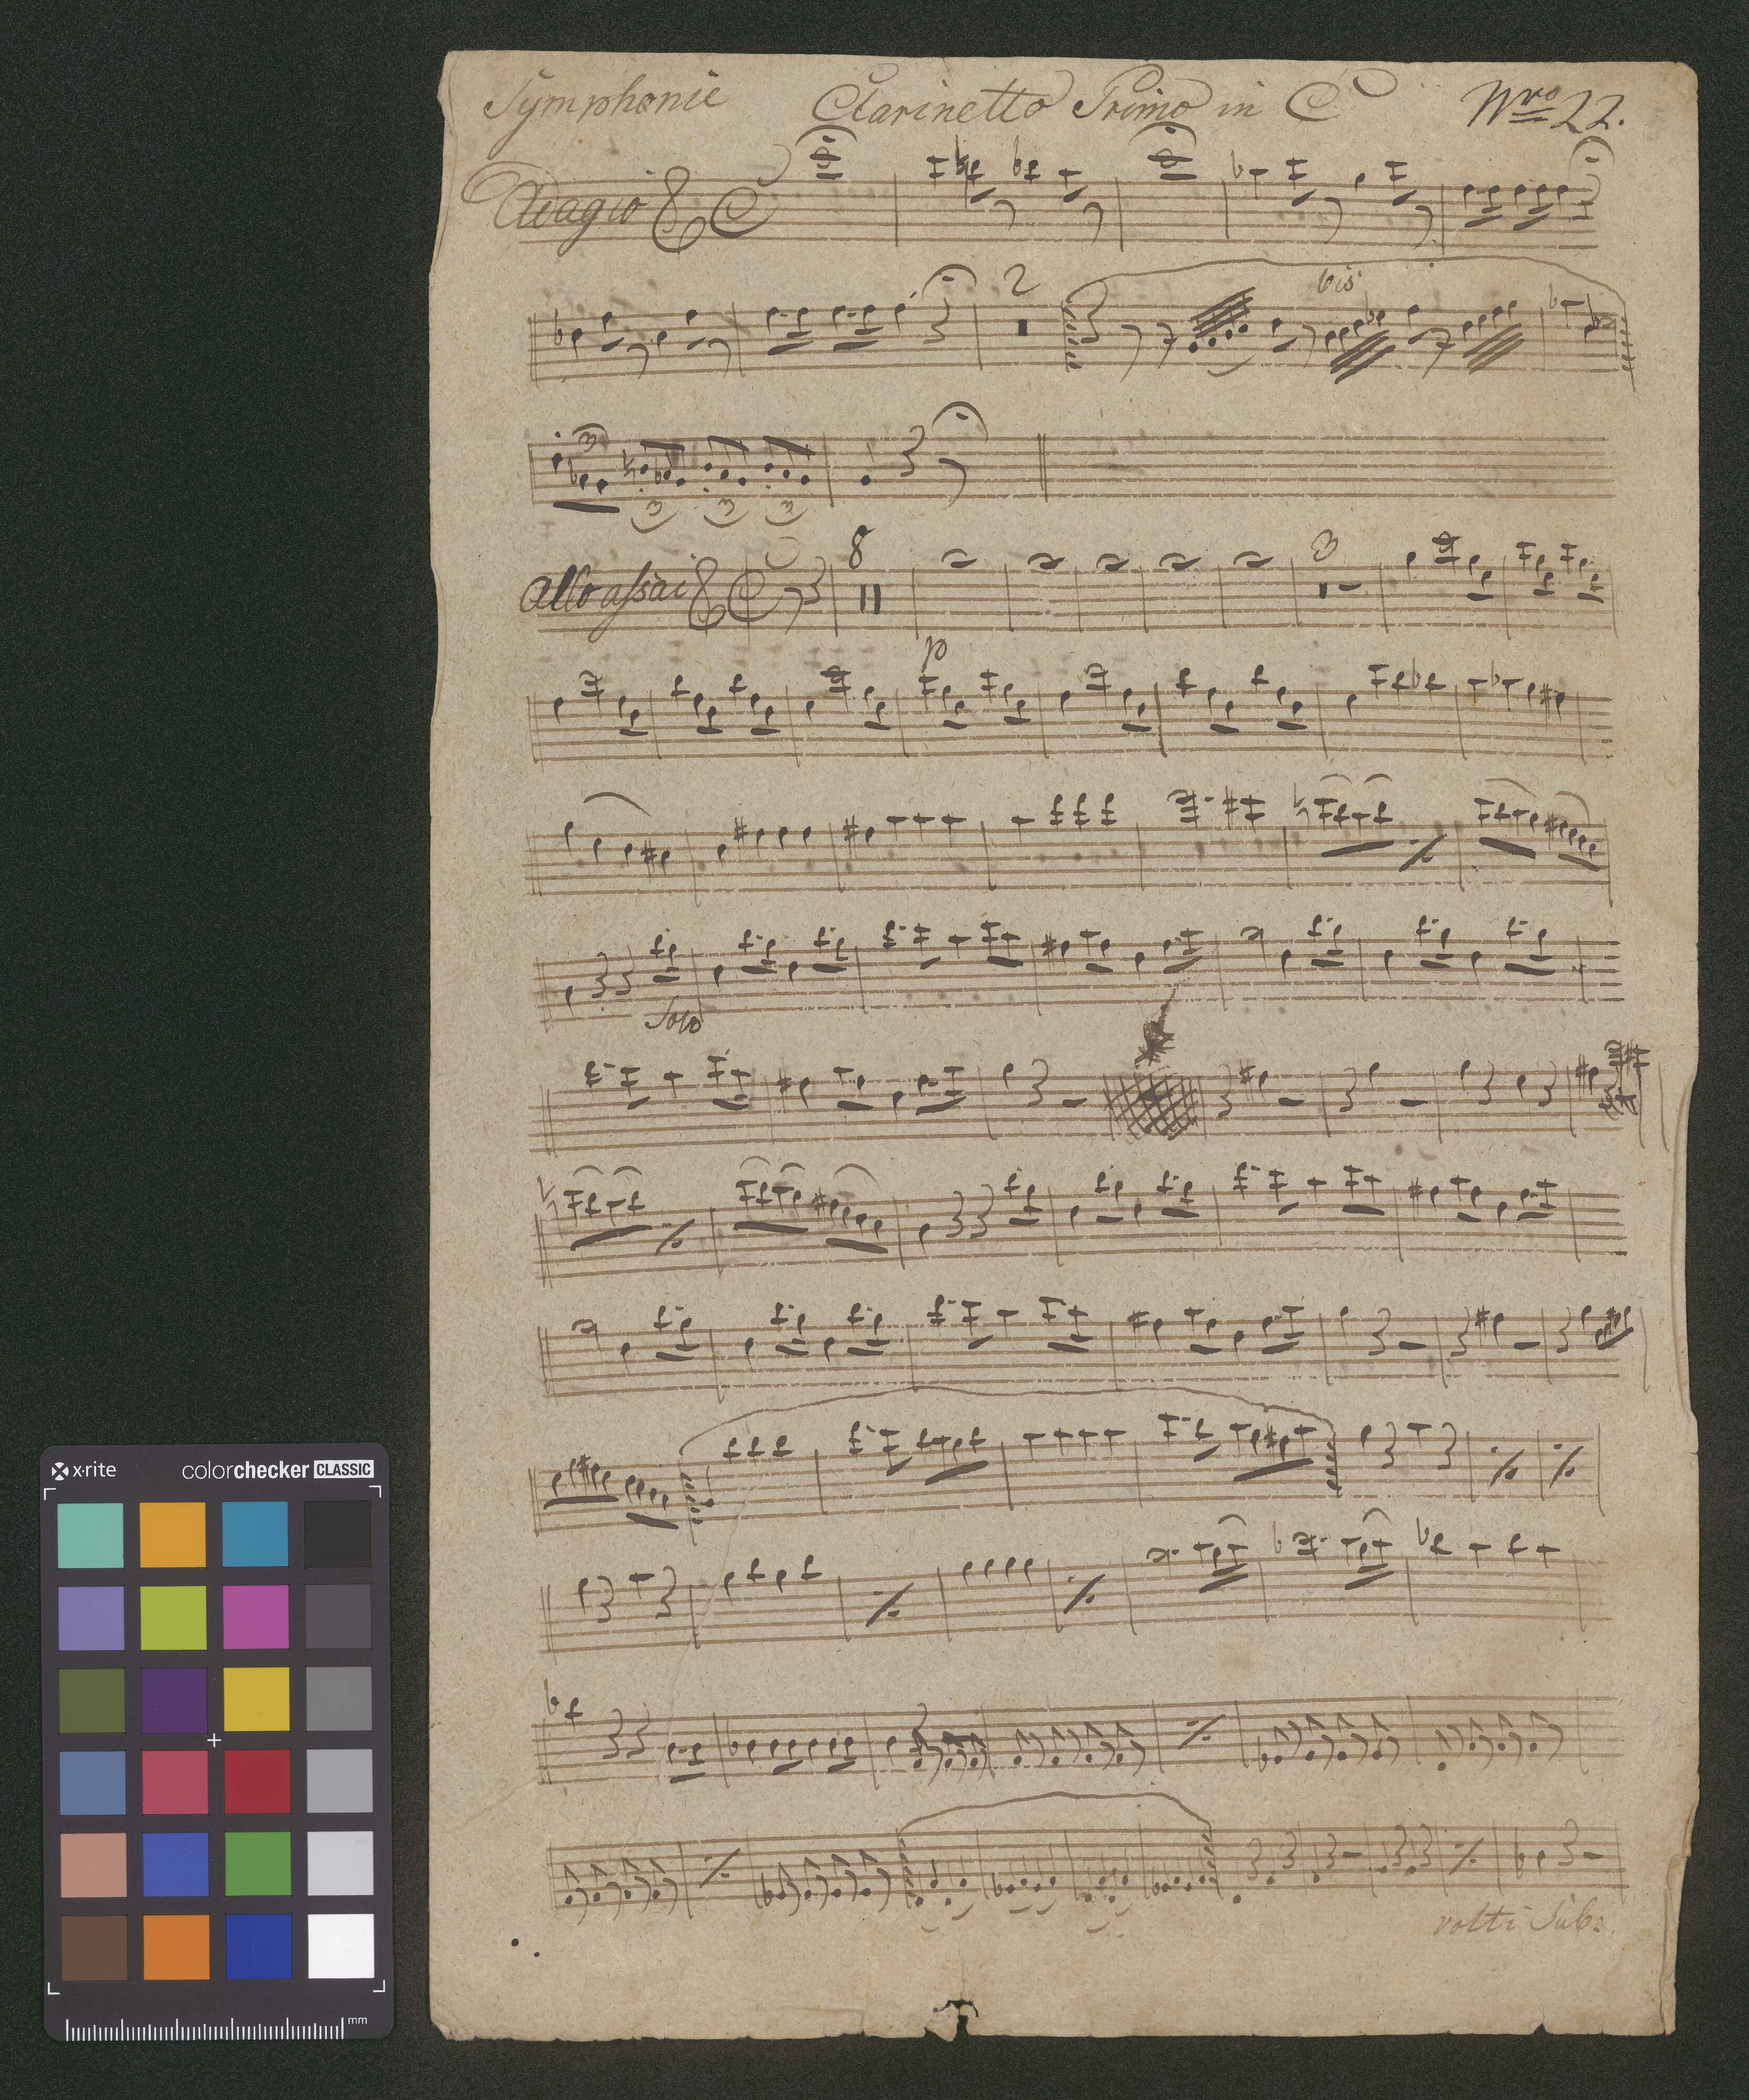 Symphonie Clarinetto Primo in C Nro 22.
Adagio
2 bis
3 3 3 3
Allo assai 8 3
p
Solo
volti Sub:
x-rite colorchecker CLASSIC
mm